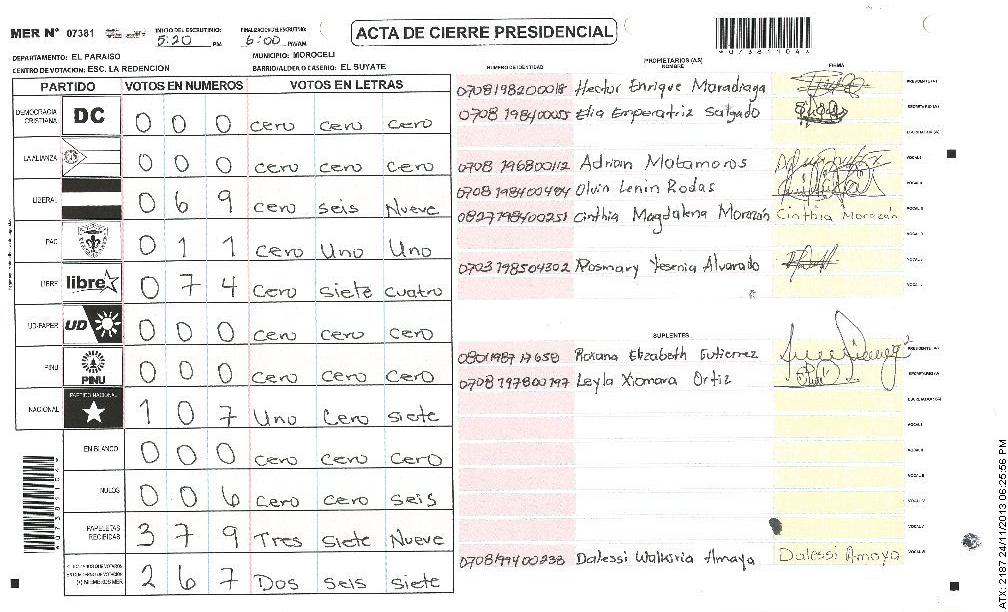 MER N° 07381 INICIO DEL ESCRUTINIO: 5:20 PM FINALIZACION DEL ESCRUTINIO: 6:00 PM/AM ACTA DE CIERRE PRESIDENCIAL
DEPARTAMENTO: EL PARAISO MUNICIPIO: MOROCELI
CENTRO DE VOTACION: ESC. LA REDENCION BARRIO/ALDEA O CASERIO: EL SUYATE
PARTIDO VOTOS EN NUMEROS VOTOS EN LETRAS
DEMOCRACIA CRISTIANA DC 0 0 0 cero cero cero
LA ALIANZA 0 0 0 cero cero cero
LIBERAL 0 6 9 cero seis Nueve
PAC 0 1 1 cero Uno Uno
LIBRE libre 0 7 4 cero siete cuatro
UD-FAPER UD 0 0 0 cero cero cero
PINU PINU 0 0 0 cero cero cero
NACIONAL PARTIDO NACIONAL 1 0 7 Uno cero siete
EN BLANCO 0 0 0 cero cero cero
NULOS 0 0 6 cero cero seis
PAPELETAS RECIBIDAS 3 7 9 Tres siete Nueve
(+) MIEMBROS MER 2 6 7 Dos seis siete
NUMERO DE IDENTIDAD PROPIETARIOS (A,S) NOMBRE FIRMA
0708198200018 Hector Enrique Maradiaga PRESIDENTE (A)
0708 198400055 Elia Emperatriz Salgado SECRETARIO (A)
ESCRUTADOR (A)
0708 196800112 Adrian Matamoros VOCAL I
0708 198400484 Olvin Lenin Rodas VOCAL II
0827198400251 Cinthia Magdalena Morazán Cinthia Morazán VOCAL III
0703 198504302 Rosmary Yesenia Alvarado
SUPLENTES
0801 1987 17658 Roxana Elizabeth Gutierrez PRESIDENTE (A)
0708 197800797 Leyla Xiomara Ortiz SECRETARIO (A)
ESCRUTADOR (A)
VOCAL I
0708199400238 Dalessi Walkiria Amaya Dalessi Amaya
ATX: 2187 24/11/2013 06:25:56 PM